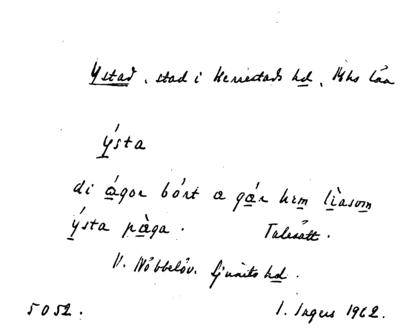 Ystad, stad i Herrestads hd, Mhs län
ýsta
di ágor bórt o gár hem lìasom
ýsta pàga. Talesätt.
V. Nöbbelöv. Ljunits hd.
5052. I. Ingers 1962.